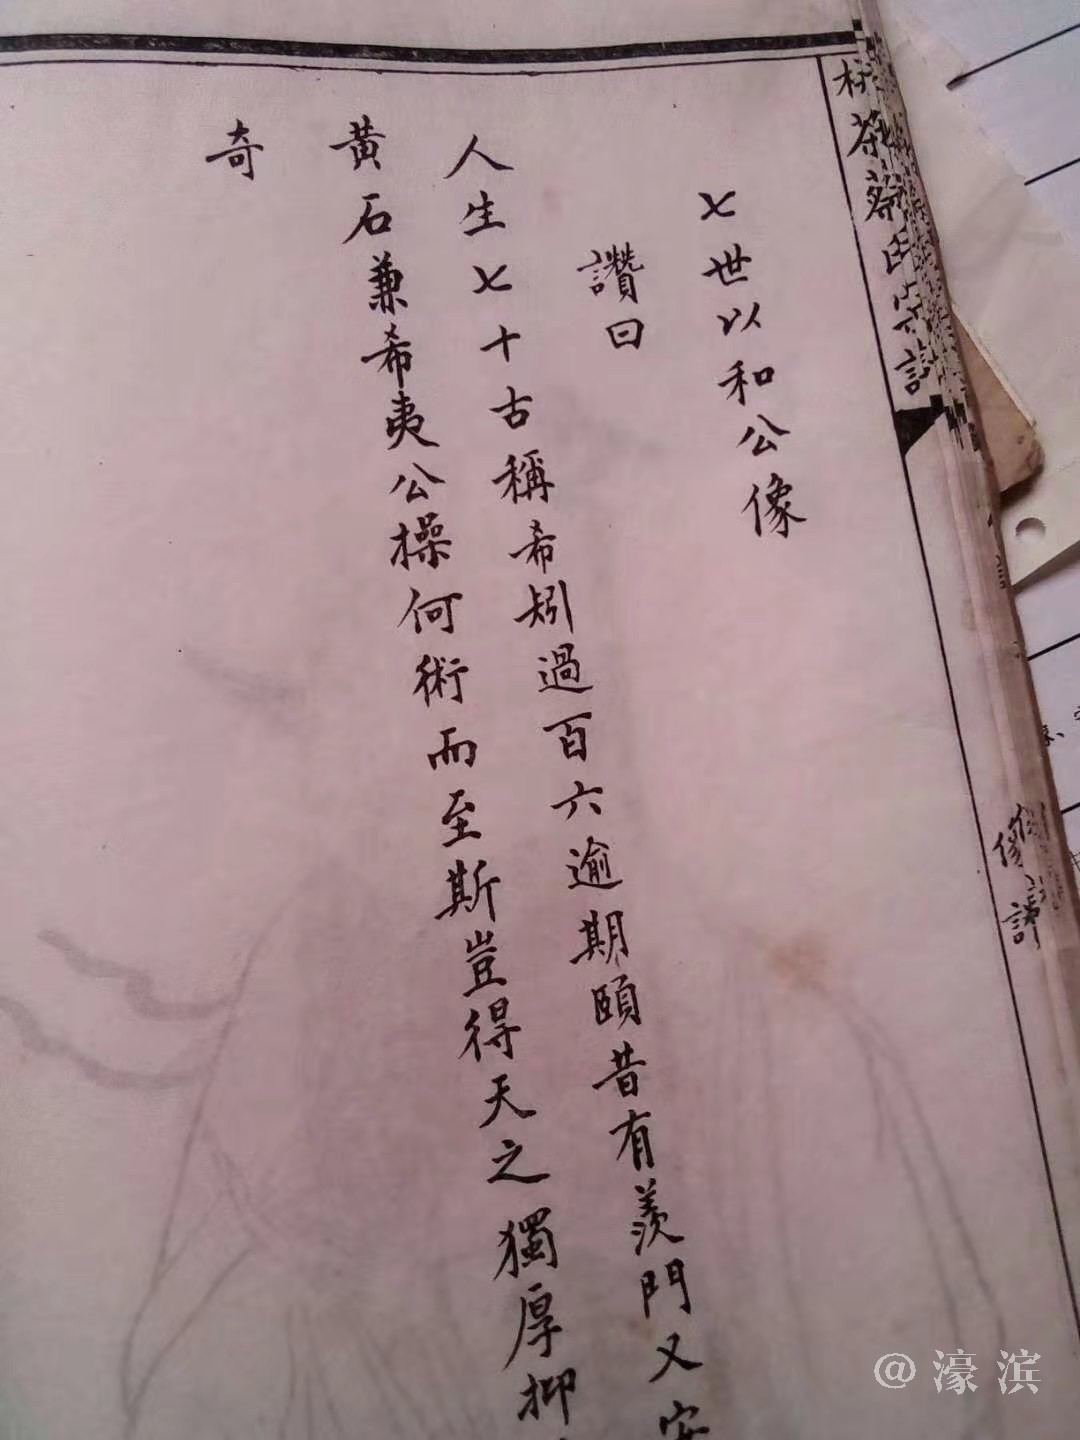 栟茶蔡氏宗譜
像譜
七世以和公像
讚曰
人生七十古稱希矧過百六逾期頤昔有羨門又安
黃石兼希夷公操何術而至斯豈得天之獨厚抑
奇
@濠滨